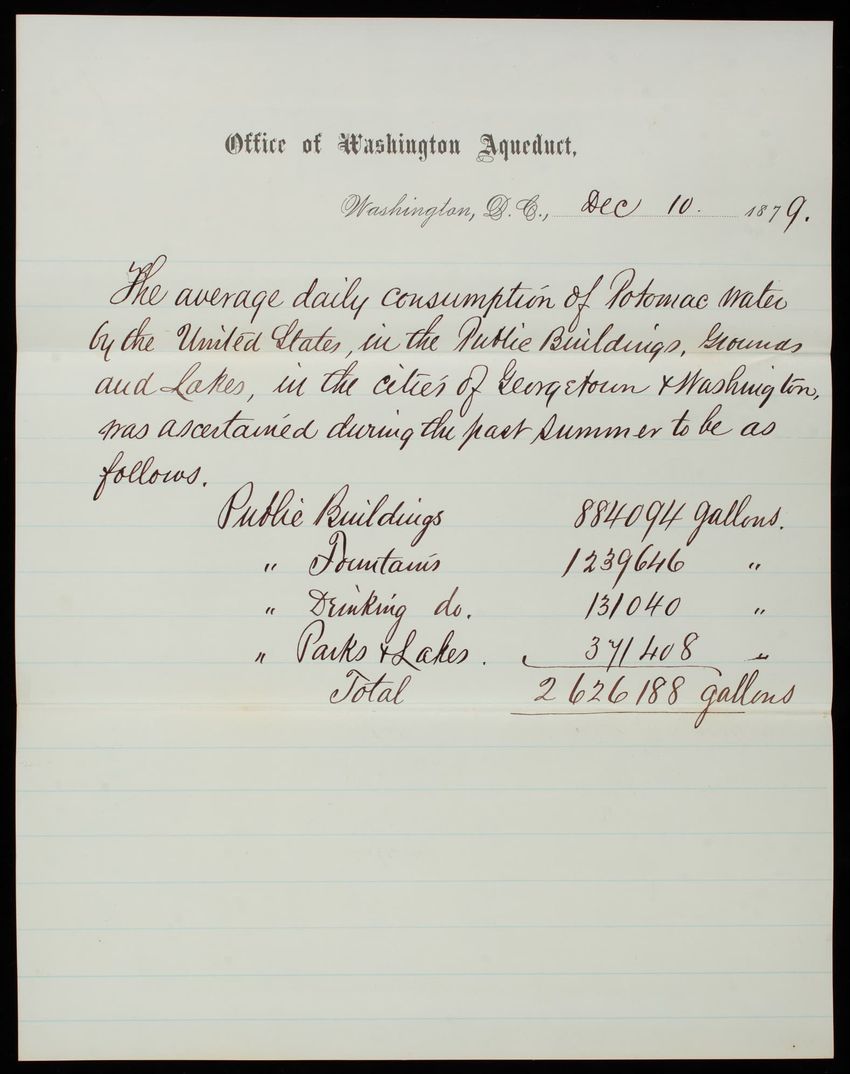 Office of Washington Aqueduct,
Washington, D.C., Dec 10. 1879.
The average daily consumption of Potomac water
by the United States, in the Public Buildings, Grounds
and Lakes, in the cities of Georgetown & Washington,
was ascertained during the past summer to be as
follows.
Public Buildings 884094 gallons.
" Fountains 1239646 "
" Drinking do. 131040 "
" Parks & Lakes. 371408 "
Total 2626188 gallons